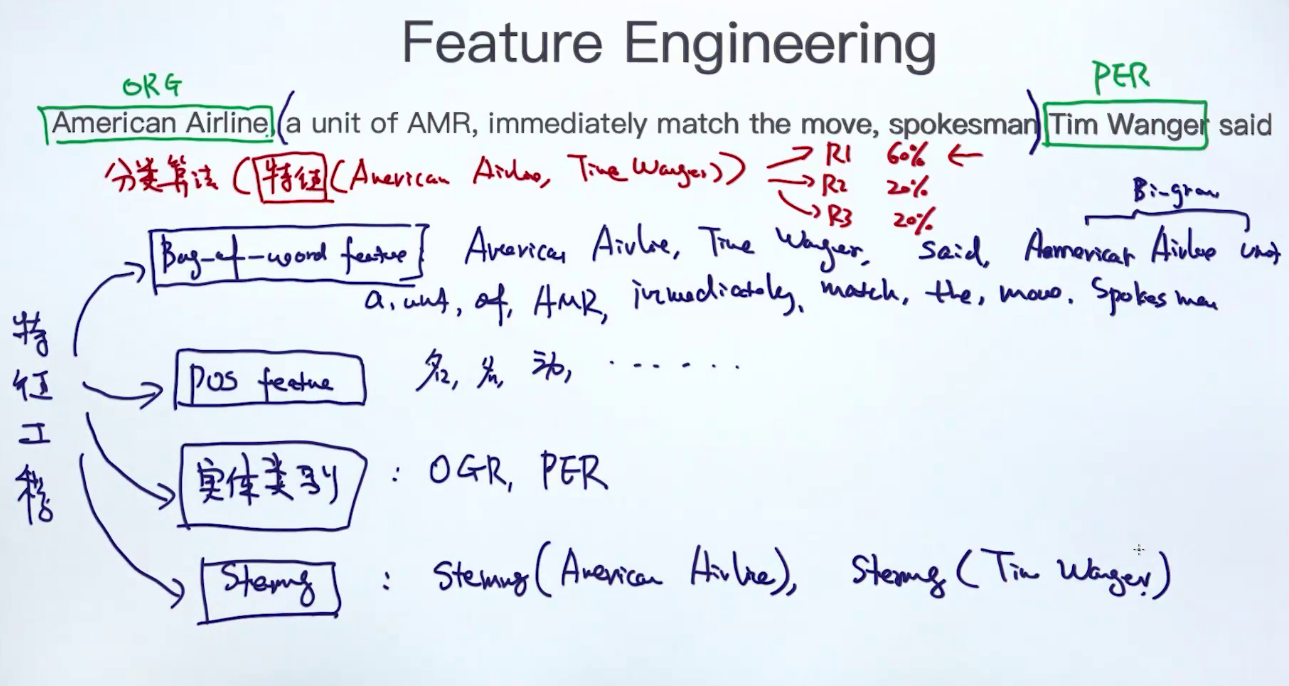 Feature Engineering
ORG
PER
American Airline, (a unit of AMR, immediately match the move, spokesman) Tim Wanger said
分类算法 (特征 (American Airline, Time Wanger)) → R1 60% ←
→ R2 20%
→ R3 20%
Bi-gram
Bag-of-word feature American Airline, Time Wanger, said, American Airline unit
a, unit, of, AMR, immediately, match, the, move, Spokesman
特征工程
POS feature 名, 动, ......
实体类别 : OGR, PER
Stemming : Stemming (American Airline), Stemming (Tim Wanger)